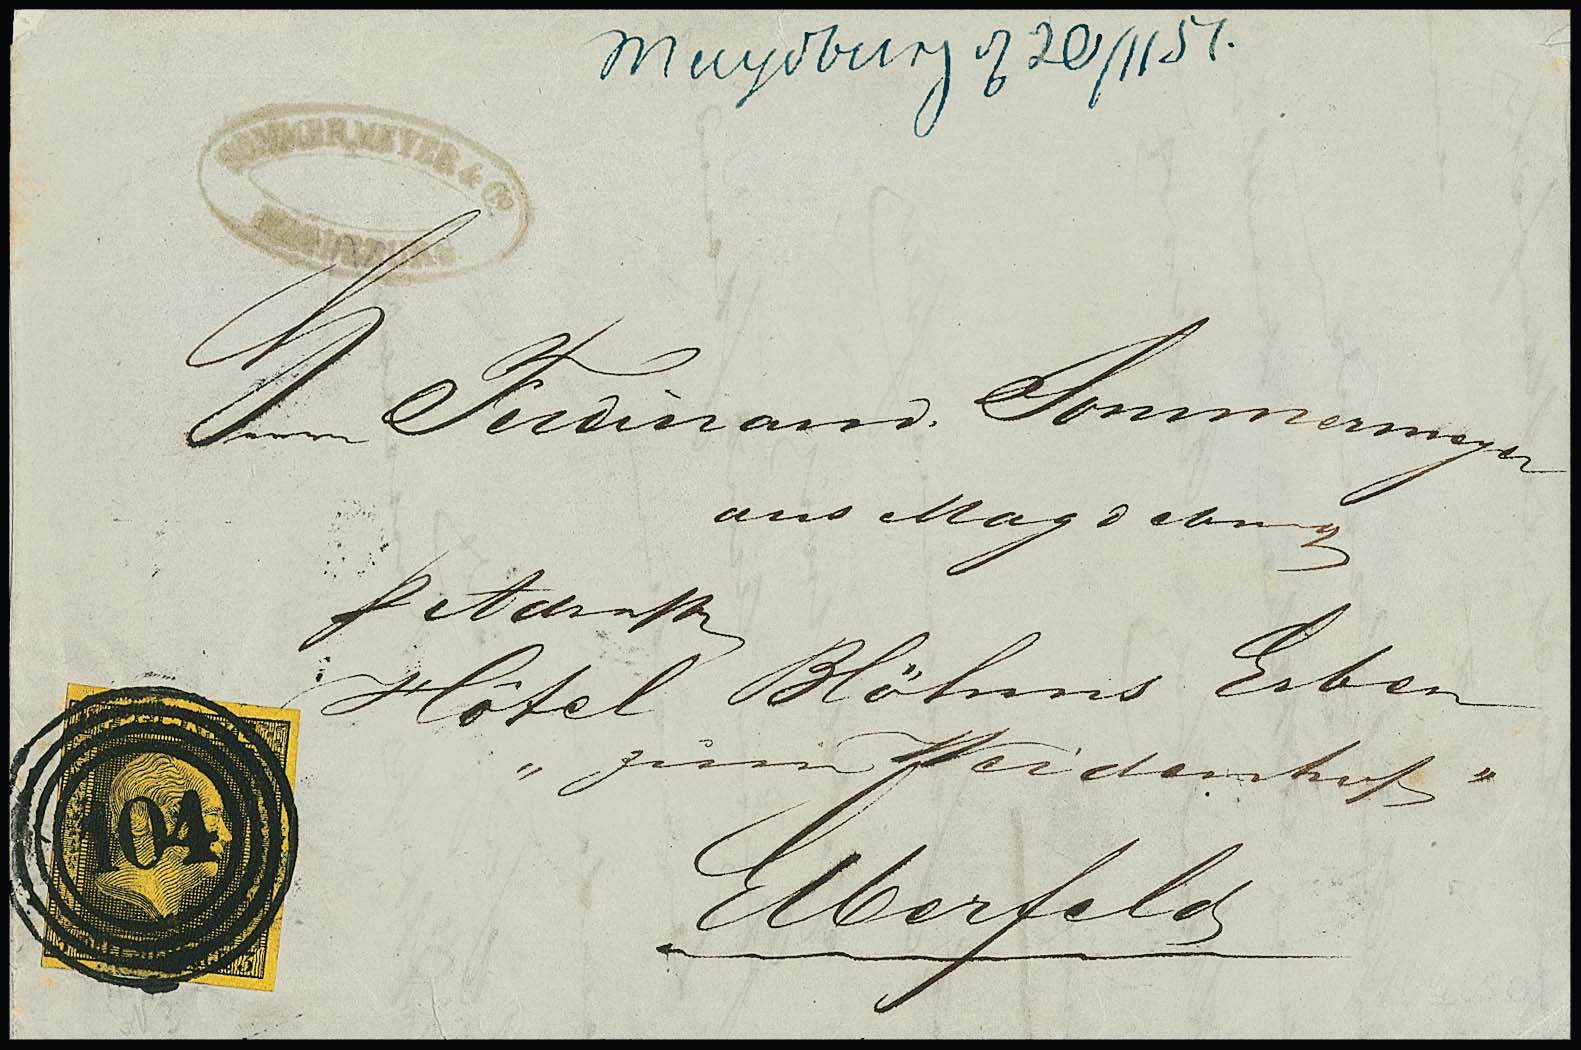 Magdburg d 20/11 51.
SOMMERMEYER & Co
MAGDEBURG
Herrn Ferdinand Sommermeyer
aus Magdeburg
p Adresse
Hôtel Blöhms Erben
„ zum Weidenhof "
Elberfeld
104